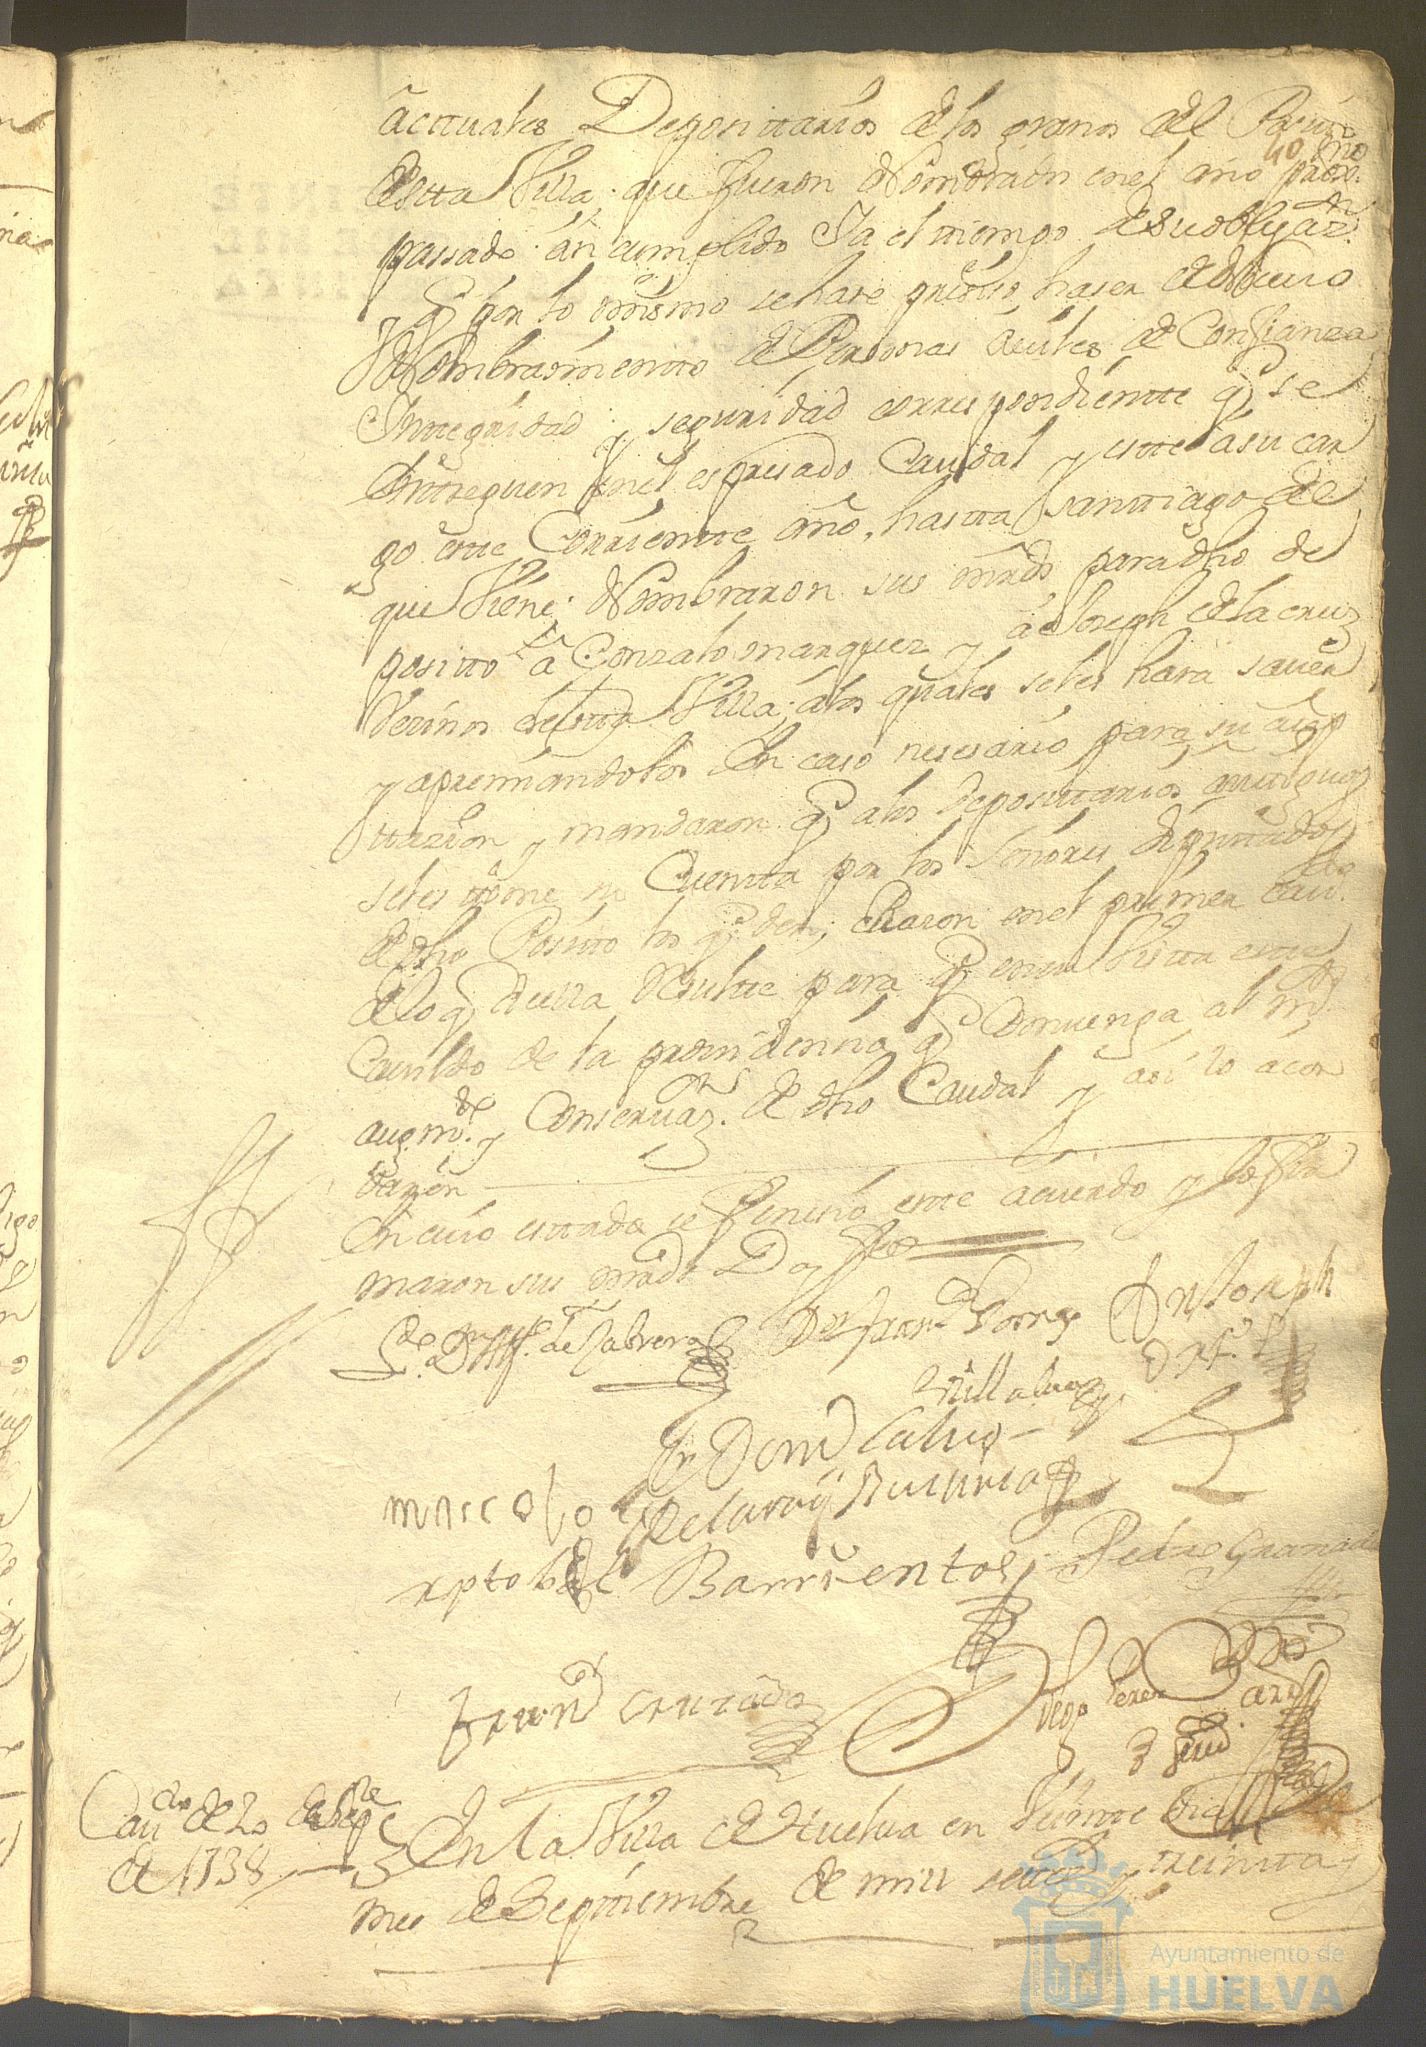 actuales Depositarios de los granos del Posito
40
de esta Villa que fueron Nombrados en el año prox.mo
passado an cumplido Ya el tiempo de su obligaz.on
y q por lo mismo se hase presiso haser de Nuevo
Nombrasmiento de Personas avuiles de Confianza
Yntegridad y seguridad correspondientte q se
Entreguen en el espresado Caudal y este a su car
go este Corriente año, hasta Santtiago de
que Viene; Nombraron sus mrds para dho de
positto a Gonzalo marquez y a Joseph de la cruz
Vecinos de esta Villa; a los quales se les hara saver
y apremiandolos En caso nesesario para su asep
ttazion y mandaron q a los depositarios antiguos
se les tome su Cuenta por los Señores diputados
de dho Posito los q den, en el primer cav.do
de lo q de ella Resulte para q en su Vista este
Cavildo de la providencia q Convenga al m.or
augm.to y Conservaz.on de dho Caudal y asi lo acor
daron
En cuio estado se fenecio este acuerdo y lo fir
maron sus mrds Doy fee
de Cabrera
Dn fran.co Borrego
Dn Joseph
Villalva
Dn Dom.o Calvo
marcos
Pelaroy
xptobal Barrientos
Pedro Granado
Fran.co Cruzado
Diego Perez
Cav.do de 20 de Sep.re
de 1738
En la Villa de Huelva en Veinte Dias del
mes de Septiembre de mill settez.s y treinta y
Ayuntamiento de
HUELVA